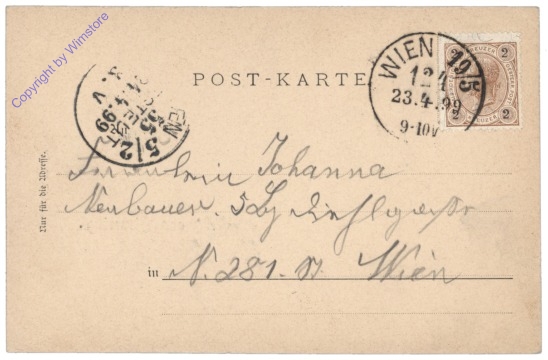 Copyright by Wimstore
POST-KARTE
WIEN 10/5
124
23.4.99
9-10V
2 KREUZER 2
2 2
5/2
55
BESTELLT
24.4.99
V
Nur für die Adresse.
Fräulein Johanna
Neubauer
in N. 281. Wien